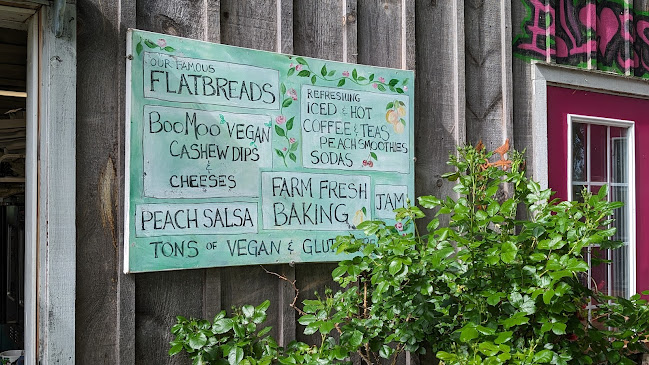 OUR FAMOUS
FLATBREADS
BOOMOO VEGAN
CASHEW DIPS
&
CHEESES
PEACH SALSA
REFRESHING
ICED & HOT
COFFEE & TEAS
PEACH SMOOTHIES
SODAS
FARM FRESH
BAKING
JAM
TONS OF VEGAN &